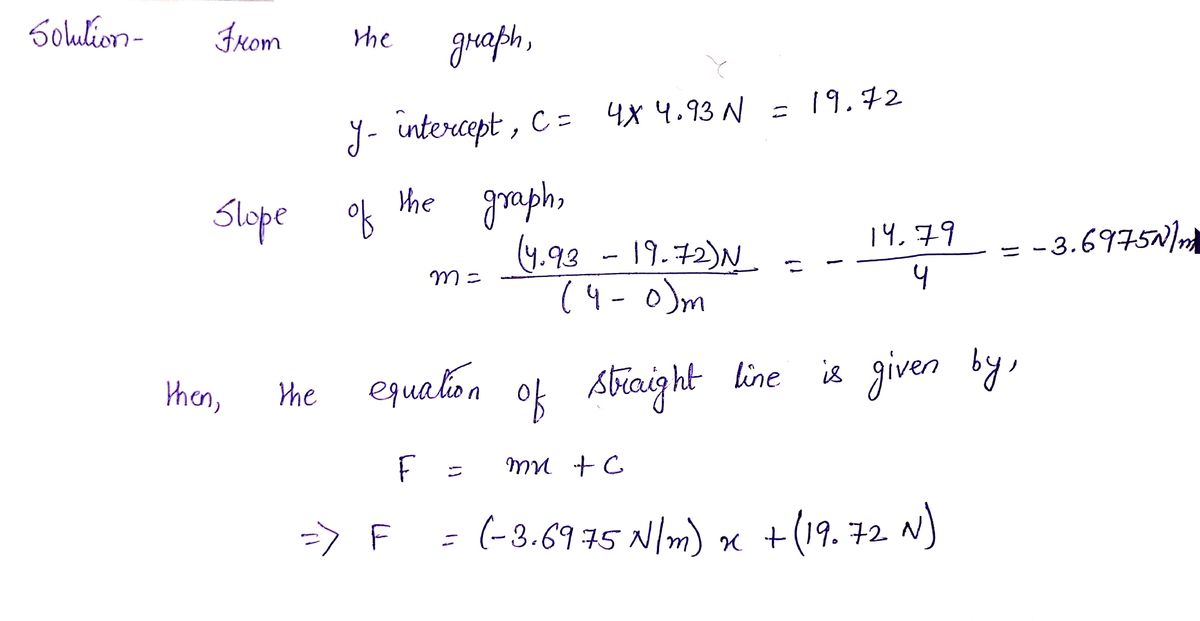 Solution- From the graph,
y- intercept, C = 4x 4.93 N = 19.72
Slope of the graph,
m = (4.93 - 19.72)N / (4 - 0)m = - 14.79 / 4 = -3.6975N/m
then, the equation of straight line is given by,
F = mx + C
=> F = (-3.6975 N/m) x + (19.72 N)